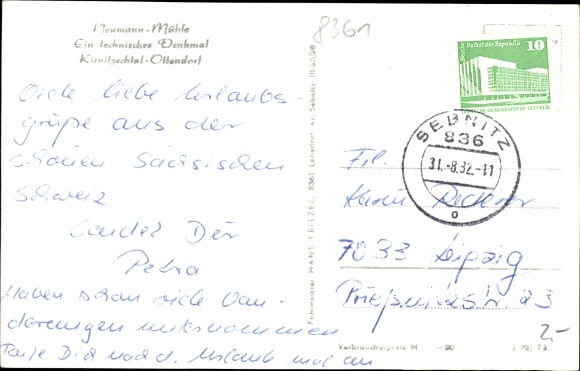 Neumann-Mühle
Ein technisches Denkmal
Kirnitzschtal-Ottendorf
Viele liebe Urlaubs-
grüße aus der
schönen Sächsischen
Schweiz
sendet Dir
Petra
Haben schon viele Wan-
derungen unternommen
Rufe Dich nach d. Urlaub mal an
8361
Fotomeister HANS FRITZEL, 8361 Lohsdorf, Kr. Sebnitz III
Berlin Palast der Republik
10
DEUTSCHE DEMOKRATISCHE REPUBLIK
SEBNITZ
836
31.-8.82.-11
o
Frl.
Karin
7033 Leipzig
23
2,-
Verbraucherpreis M -.20